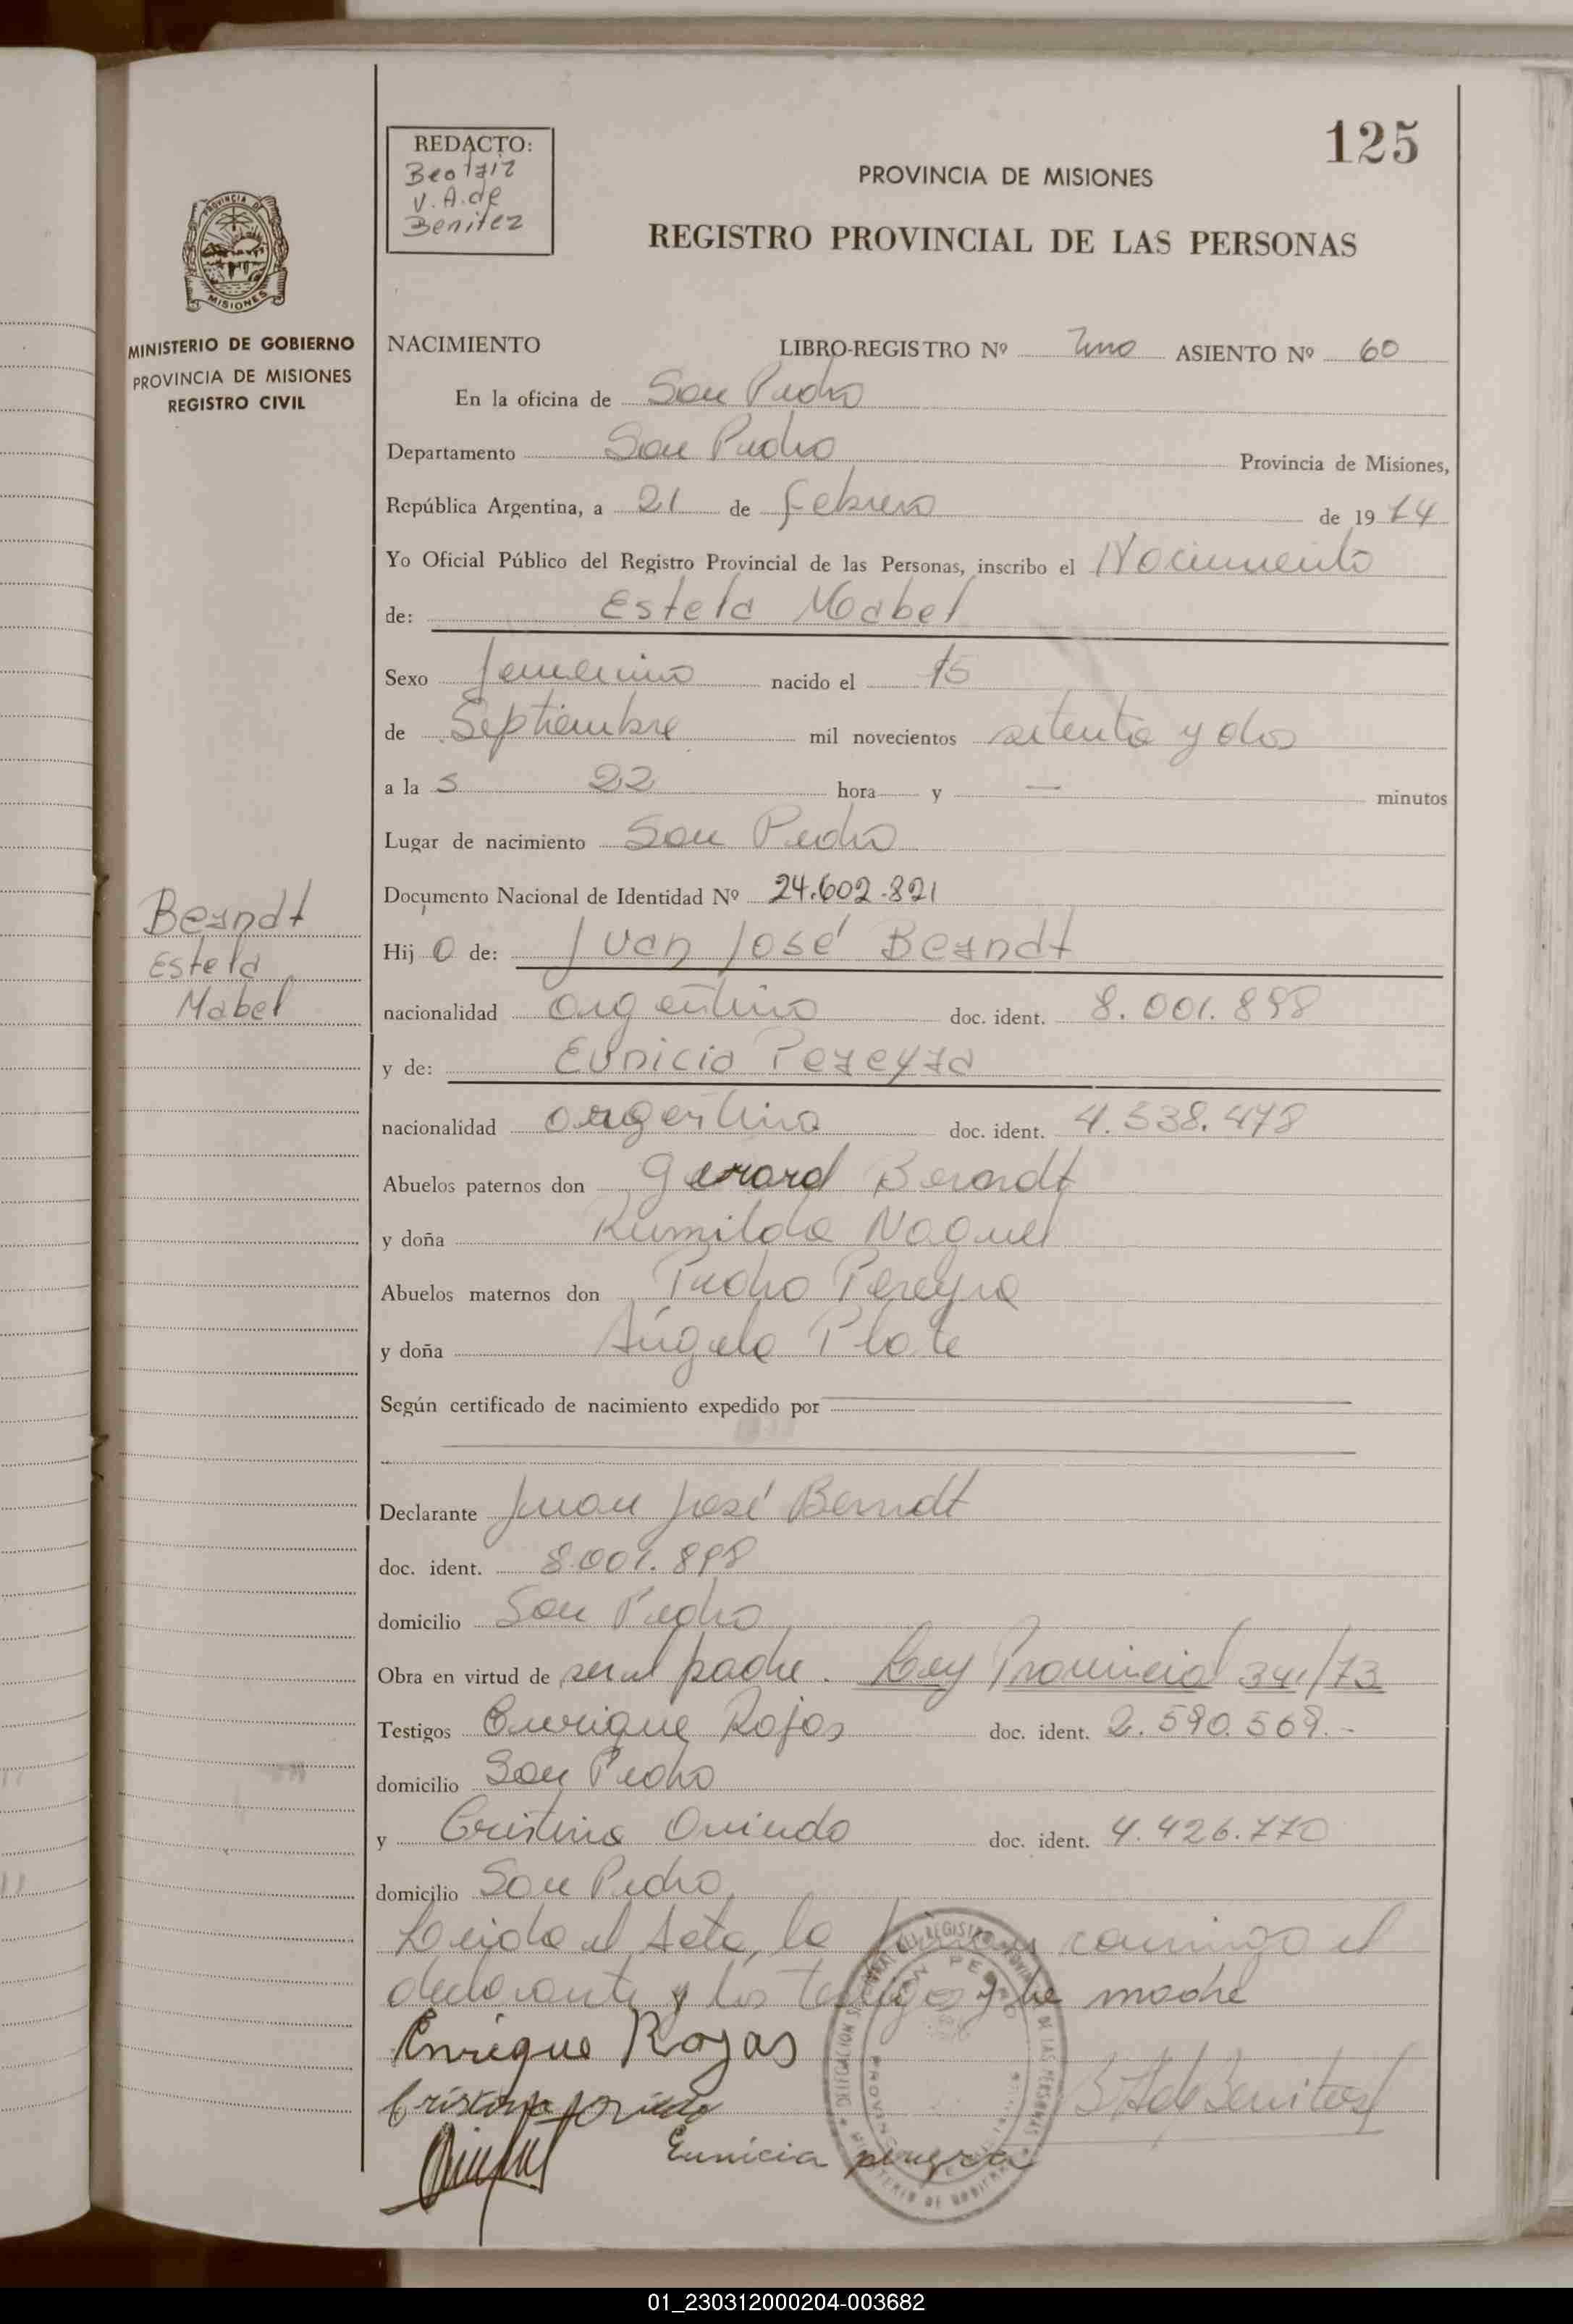 125
REDACTO:
Beatriz
V. A. de
Benitez
PROVINCIA DE MISIONES
REGISTRO PROVINCIAL DE LAS PERSONAS
MISIONES
MINISTERIO DE GOBIERNO
PROVINCIA DE MISIONES
REGISTRO CIVIL
NACIMIENTO LIBRO-REGISTRO Nº Uno ASIENTO Nº 60
En la oficina de San Pedro
Departamento San Pedro Provincia de Misiones,
República Argentina, a 21 de febrero de 19 74
Yo Oficial Público del Registro Provincial de las Personas, inscribo el Nacimiento
de: Estela Mabel
Sexo femenino nacido el 15
de Septiembre mil novecientos setenta y dos
a la s 22 hora y — minutos
Lugar de nacimiento San Pedro
Documento Nacional de Identidad Nº 24.602.821
Berndt
Estela
Mabel
Hij a de: Juan José Berndt
nacionalidad argentino doc. ident. 8.001.898
y de: Eunicia Pereyra
nacionalidad argentina doc. ident. 4.538.478
Abuelos paternos don Gerard Berndt
y doña Rumilda Naguel
Abuelos maternos don Pedro Pereyra
y doña Ángela Plate
Según certificado de nacimiento expedido por
Declarante Juan José Berndt
doc. ident. 8.001.898
domicilio San Pedro
Obra en virtud de ser el padre. Ley Provincial 341/73
Testigos Enrique Rojas doc. ident. 2.590.569.-
domicilio San Pedro
y Cristina Oviedo doc. ident. 4.426.770
domicilio San Pedro
Leída el Acta, la firman conmigo el
declarante y los testigos y la madre
Enrique Rojas
Cristina Oviedo
B A de Benitez
Eunicia pereyra
01_230312000204-003682